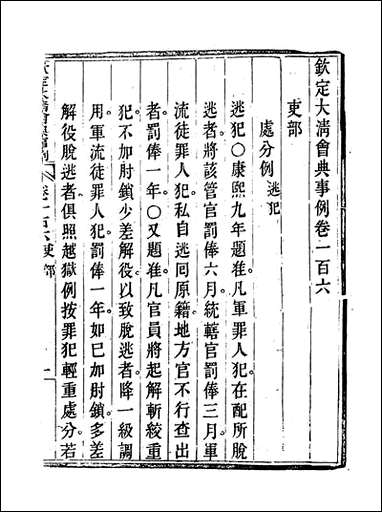 欽定大淸會典事例卷一百六
吏部
處分例逃犯
逃犯○康熙九年題准凡軍罪人犯在配所脫
逃者將該管官罰俸六月統轄官罰俸三月軍
流徒罪人犯私自逃囘原籍地方官不行查出
者罰俸一年○又題准凡官員將起解斬絞重
犯不加肘鎖少差解役以致脫逃者降一級調
用軍流徒罪人犯罰俸一年如已加肘鎖多差
解役脫逃者俱照越獄例按罪犯輕重處分若
卷一百六吏部 一